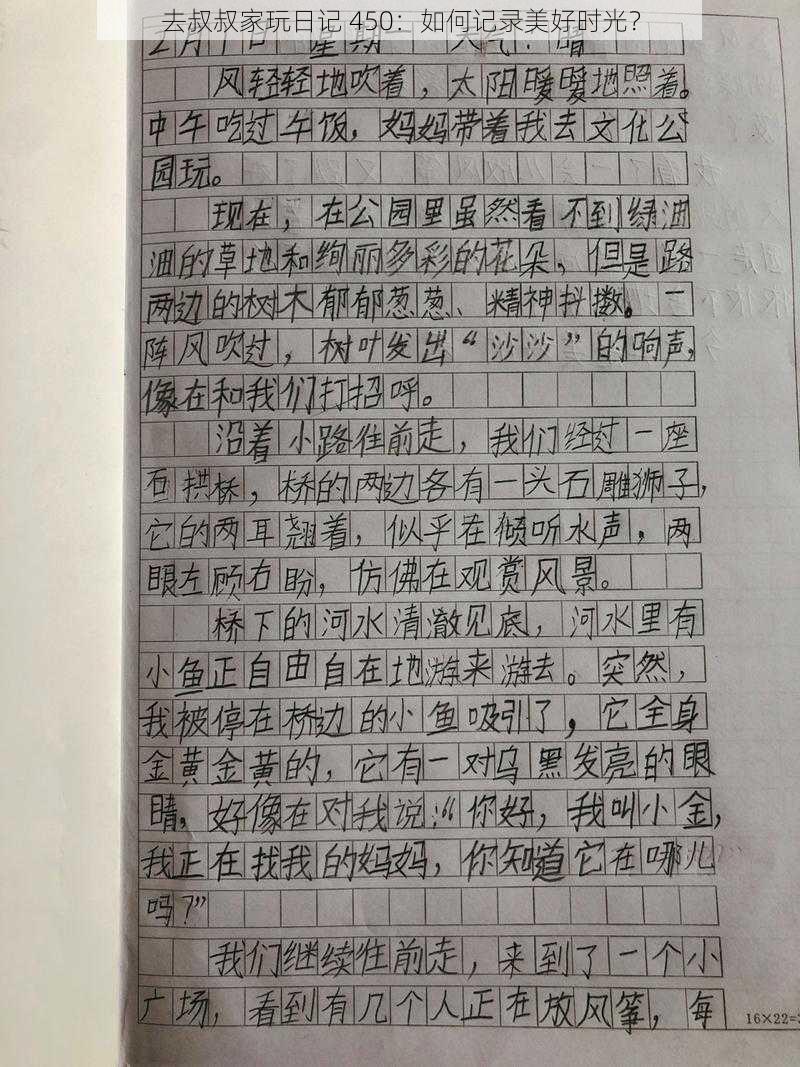 去叔叔家玩日记 450：如何记录美好时光？
2月1日 星期一 天气：晴
风轻轻地吹着，太阳暖暖地照着。
中午吃过午饭，妈妈带着我去文化公
园玩。
现在，在公园里虽然看不到绿油
油的草地和绚丽多彩的花朵，但是路
两边的树木郁郁葱葱、精神抖擞。一
阵风吹过，树叶发出“沙沙”的响声，
像在和我们打招呼。
沿着小路往前走，我们经过一座
石拱桥，桥的两边各有一头石雕狮子，
它的两耳翘着，似乎在倾听水声，两
眼左顾右盼，仿佛在观赏风景。
桥下的河水清澈见底，河水里有
小鱼正自由自在地游来游去。突然，
我被停在桥边的小鱼吸引了，它全身
金黄金黄的，它有一对乌黑发亮的眼
睛，好像在对我说：“你好，我叫小金，
我正在找我的妈妈，你知道它在哪儿
吗？”
我们继续往前走，来到了一个小
广场，看到有几个人正在放风筝，每
16×22=